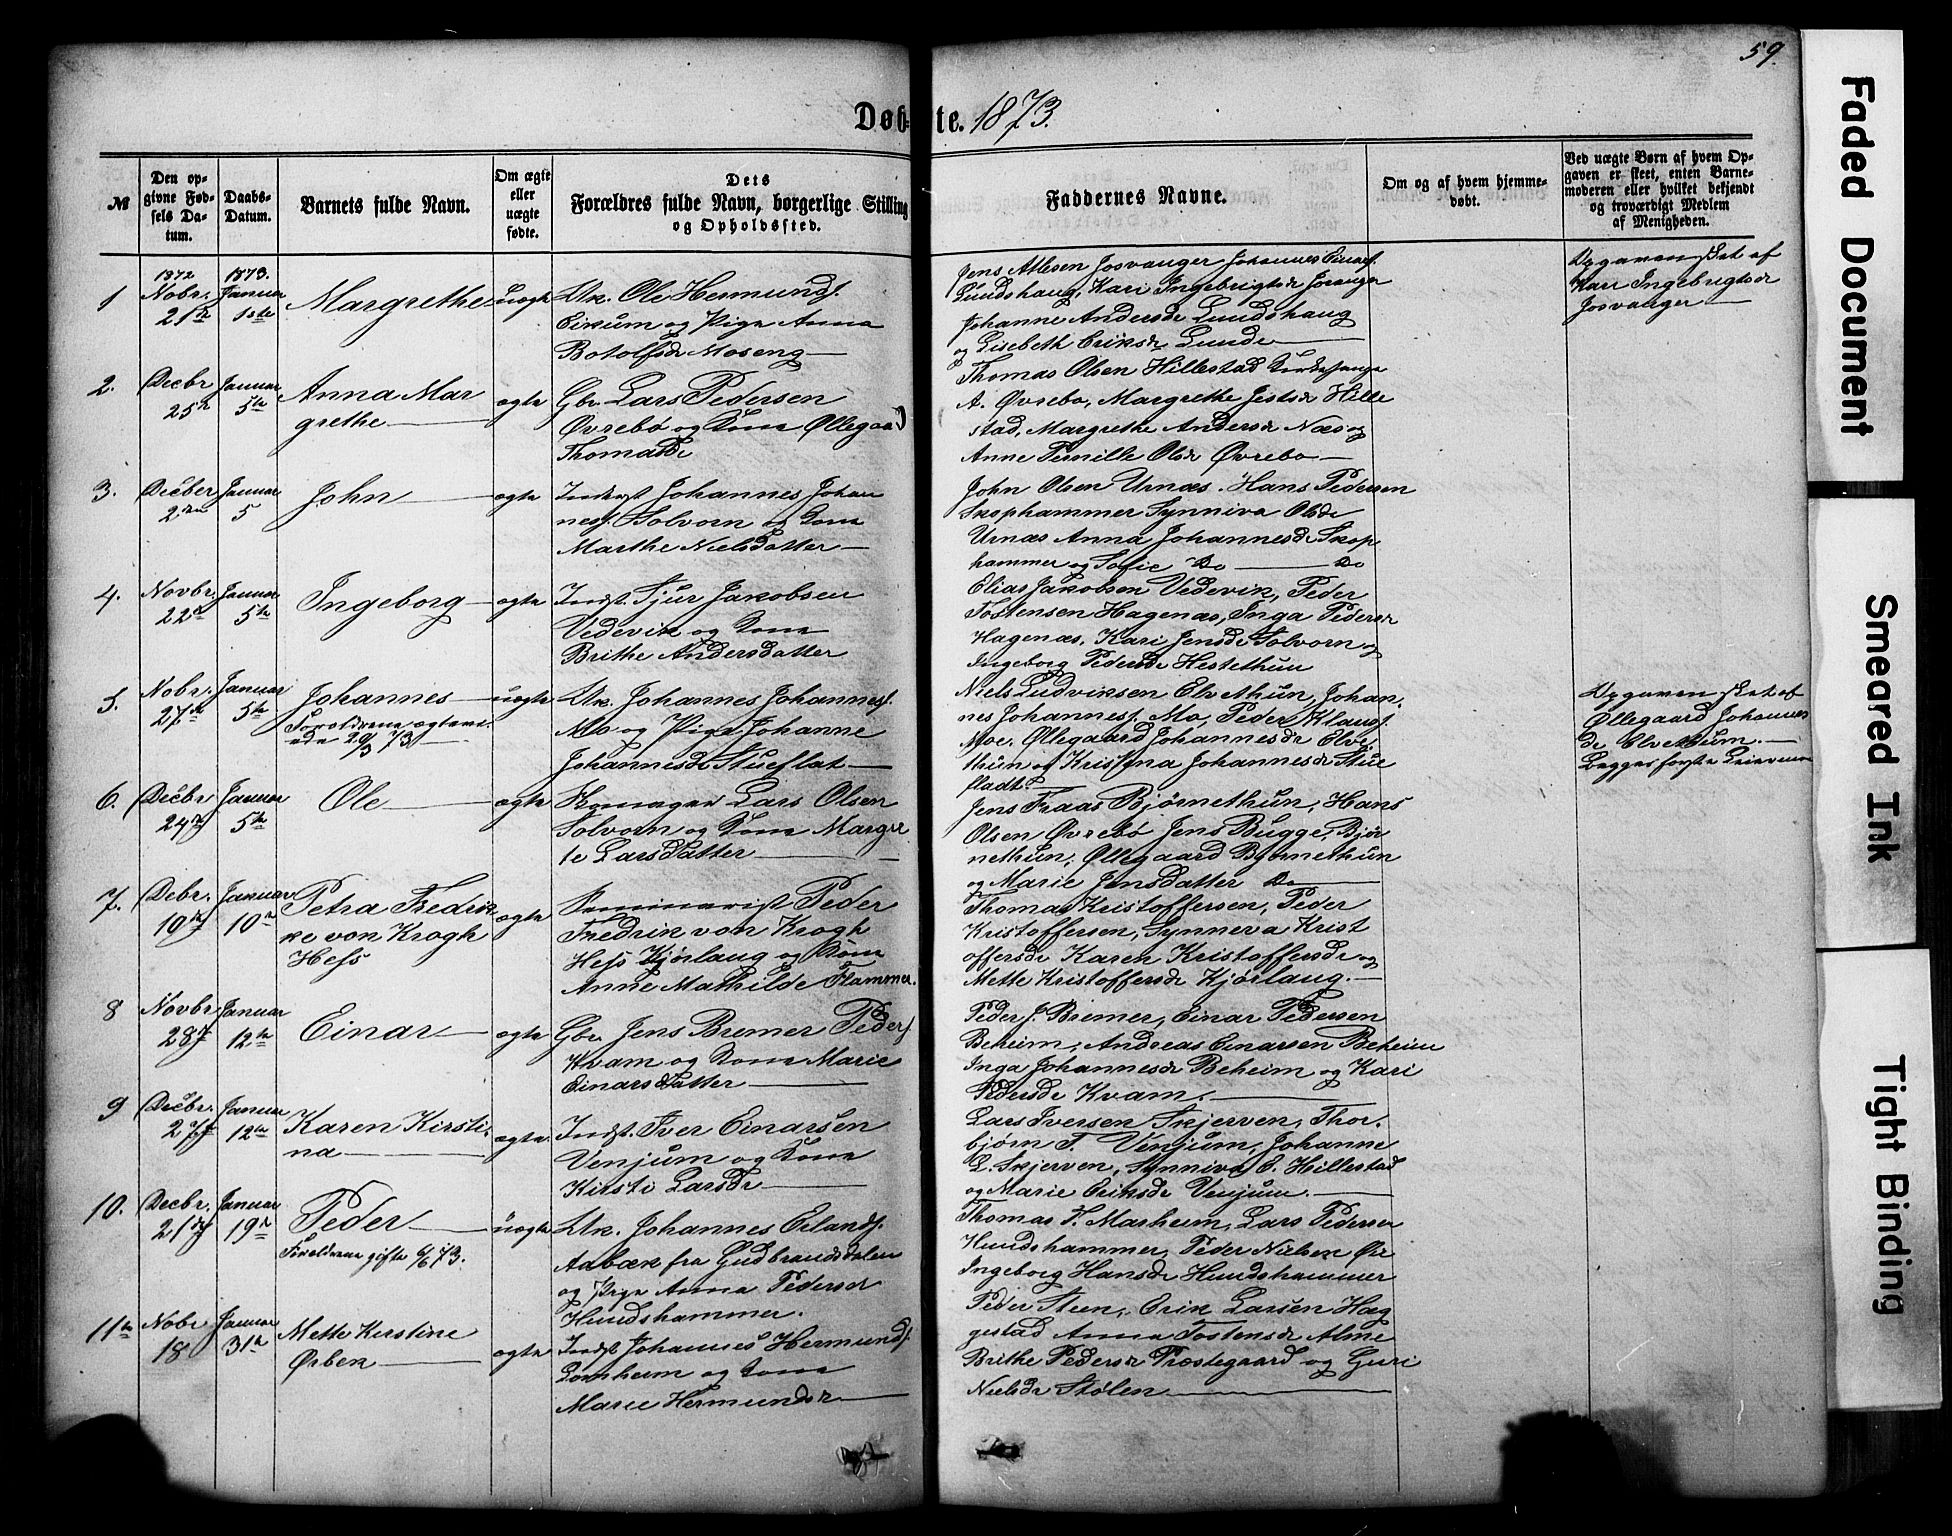 59.
Døbte. 1873.
№
Den opgivne Fødsels Datum.
Daabs-Datum.
Barnets fulde Navn.
Om ægte eller uægte fødte.
Dets Forældres fulde Navn, borgerlige Stilling og Opholdssted.
Faddernes Navne.
Om og af hvem hjemmedøbt.
Ved uægte Børn af hvem Opgaven er skeet, enten Barnemoderen eller hvilket bekjendt og troværdigt Medlem af Menigheden.
1
1872 Nobr. 21
1873. Januar 1ste
Margrethe
uægte
Uk. Ole Hermunds.
Eikum og Pige Anna
Botolfsdr Moseng
Jens Atlesen Josvanger Johannes Einars.
Lundshaug, Kari Ingebrigtsdr Josvanger
Johanne Andersdr Lundshaug
og Lisebeth Eriksdr Lunde
Opgaven sket af
Kari Ingebrigtsdr
Josvanger
2.
Decbr 25
Januar 5te
Anna Mar
grethe
ægte
Gbr. Lars Pedersen
Øvrebø og Kone Øllegaard
Thomasdr
Thomas Olsen Hillestad Kirkesanger
A. Øvrebø, Margrethe Jetsdr Hille
stad, Margrethe Andersdr Næs og
Anne Pernille Olsdr Øvrebø
3.
Decber 2den
Januar 5
John
ægte
Inderst Johannes Johan
nes. Solvorn og Kone
Marthe Nielsdatter
John Olsen Urnæs. Hans Pedersen
Skophammer Synniva Olsdr
Urnæs Anna Johannesdr Skop
hammer og Sofie Do Do
4.
Novbr. 22
Januar 5te
Ingeborg
ægte
Indst. Sjur Jakobsen
Vedevik og Kone
Brithe Andersdatter
Elias Jakobsen Vedevik, Peder
Tostensen Hagenæs, Inga Pedersdr
Hagenæs, Kari Jensdr Solvorn og
Ingeborg Pedersdr Hestethun
5.
Nobr. 27
Januar 5te
Johannes
Forældrene ægtevi-
ede 20/3 73
uægte
Uk. Johannes Johannes.
Mo og Pige Johanne
Johannesdr Stueflat
Niels Ludviksen Elvethun, Johan-
nes Johannes. Mo, Peder Klaus.
Moe. Øllegaard Johannesdr Elve-
thun og Kristina Johannesdr Stue
fladt
Opgaven sket af
Øllegaard Johannes
dr Elvethun.
Begges første Leiermaal
6.
Decbr 24
Januar 5te
Ole
ægte
Skomager Lars Olsen
Solvorn og Kone Margre
te Larsdatter
Jens Fraas Bjørnethun, Hans
Olsen Øvrebø Jens Bugge, Bjør
nethun, Øllegaard Bjørnethun
og Marie Jensdatter Do
7.
Debr. 19
Januar 10
Petra Fredrik
ke von Krogh
Hess
ægte
Seminarist Peder
Fredrik von Krogh
Hess Kjørlaug og Kone
Anne Mathilde Flammer.
Thomas Kristoffersen, Peder
Kristoffersen, Synneva Krist
offersdr Karen Kristoffersdr og
Mette Kristoffersdr Kjørlaug.
8
Novbr. 28
Januar 12te
Einar
ægte
Gbr. Jens Bremer Peders.
Kvam og Kone Marie
Einarsdatter
Peder J. Bremer, Einar Pedersen
Beheim, Andreas Einarsen Beheim
Inga Johannesdr Beheim og Kari
Pedersdr Kvam.
9
Decbr. 27
Januar 12te
Karen Kirsti-
na
ægte
Indst. Iver Einarsen
Venjum og Kone
Kirsti Larsdr
Lars Iversen Skjerven, Thor-
bjørn T. Venjum, Johanne
L. Skjerven, Synniva E. Hillestad
og Marie Eriksdr Venjum.
10.
Decbr. 21
Januar 19
Peder
Forældrene gifte 6/6 73.
uægte
Uk. Johannes Erlands.
Aabæk fra Gudbrandsdalen
og Pige Anna Pedersdr
Hundshammer.
Thomas T. Marheim, Lars Pedersen
Hundshammer, Peder Nielsen Øie
Ingeborg Hansdr Hundshammer
11te
Nobr 18
Januar 31te
Mette Kirstine
Ørbek
ægte
Indst. Johannes Hermunds.
Lomheim og Kone
Marie Hermundsdr
Peder Steen, Erik Larsen Hæg
gestad Anna Tostensdr Alme
Brithe Pedersdr Præstegaard og Guri
Nielsdr Stølen
Faded Document
Smeared Ink
Tight Binding